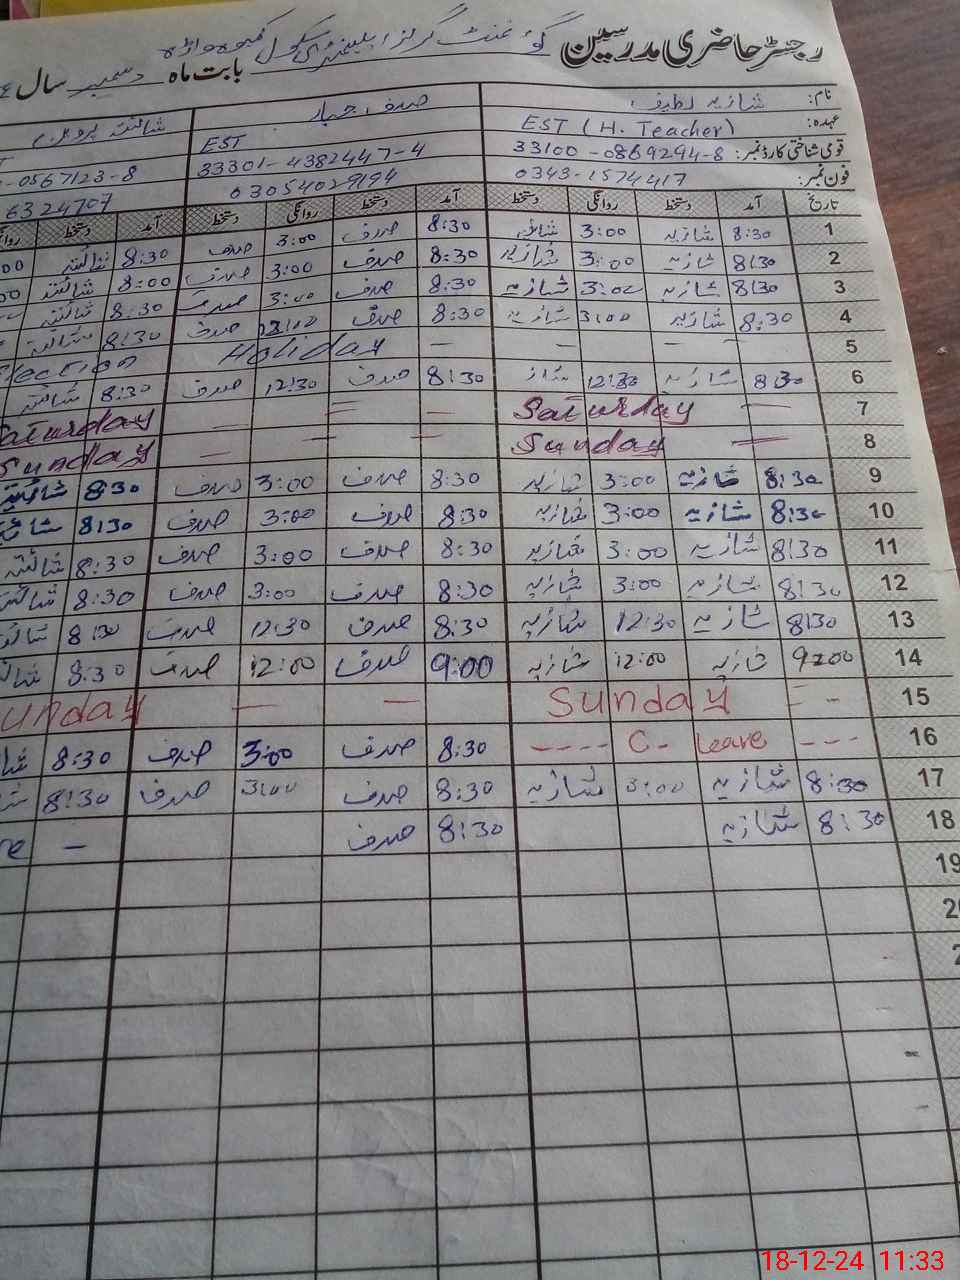 رجسٹر حاضری مدرسین گورنمنٹ گرلز ایلیمنٹری سکول کمبوہ واڑہ
بابت ماہ دسمبر سال
نام: شازیہ لطیف صدف جبار شائستہ پروین
عہدہ: EST (H. Teacher) EST
قومی شناختی کارڈ نمبر: 33100-0869294-8 33301-4382447-4 -0567123-8
فون نمبر: 0343-1574417 03054029194 6324707
تاریخ آمد دستخط روانگی دستخط آمد دستخط روانگی دستخط آمد دستخط
1 8:30 شازیہ 3:00 شازیہ 8:30 صدف 3:00 صدف 8:30 شائستہ
2 8:30 شازیہ 3:00 شازیہ 8:30 صدف 3:00 صدف 8:00 شائستہ
3 8:30 شازیہ 3:00 شازیہ 8:30 صدف 3:00 صدف 8:30 شائستہ
4 8:30 شازیہ 3:00 شازیہ 8:30 صدف صدف 8:30 شائستہ
5 - - - - Holiday
6 8:30 شازیہ 12:30 شاز 8:30 صدف 12:30 صدف 8:30 شائستہ
7 — Saturday — — — Saturday
8 — Sunday — — — Sunday
9 8:30 شازیہ 3:00 شازیہ 8:30 صدف 3:00 صدف 8:30 شائستہ
10 8:30 شازیہ 3:00 شازیہ 8:30 صدف 3:00 صدف 8:30
11 8:30 شازیہ 3:00 شازیہ 8:30 صدف 3:00 صدف 8:30 شائستہ
12 8:30 شازیہ 3:00 شازیہ 8:30 صدف 3:00 صدف 8:30 شائستہ
13 8:30 شازیہ 12:30 شازیہ 8:30 صدف 12:30 صدف 8:30
14 9:00 شازیہ 12:00 شازیہ 9:00 صدف 12:00 صدف 8:30
15 - - Sunday — — unday
16 --- C- leave ---- 8:30 صدف 3:00 صدف 8:30
17 8:30 شازیہ 3:00 شازیہ 8:30 صدف 3:00 صدف 8:30
18 8:30 شازیہ 8:30 صدف —
19
18-12-24 11:33